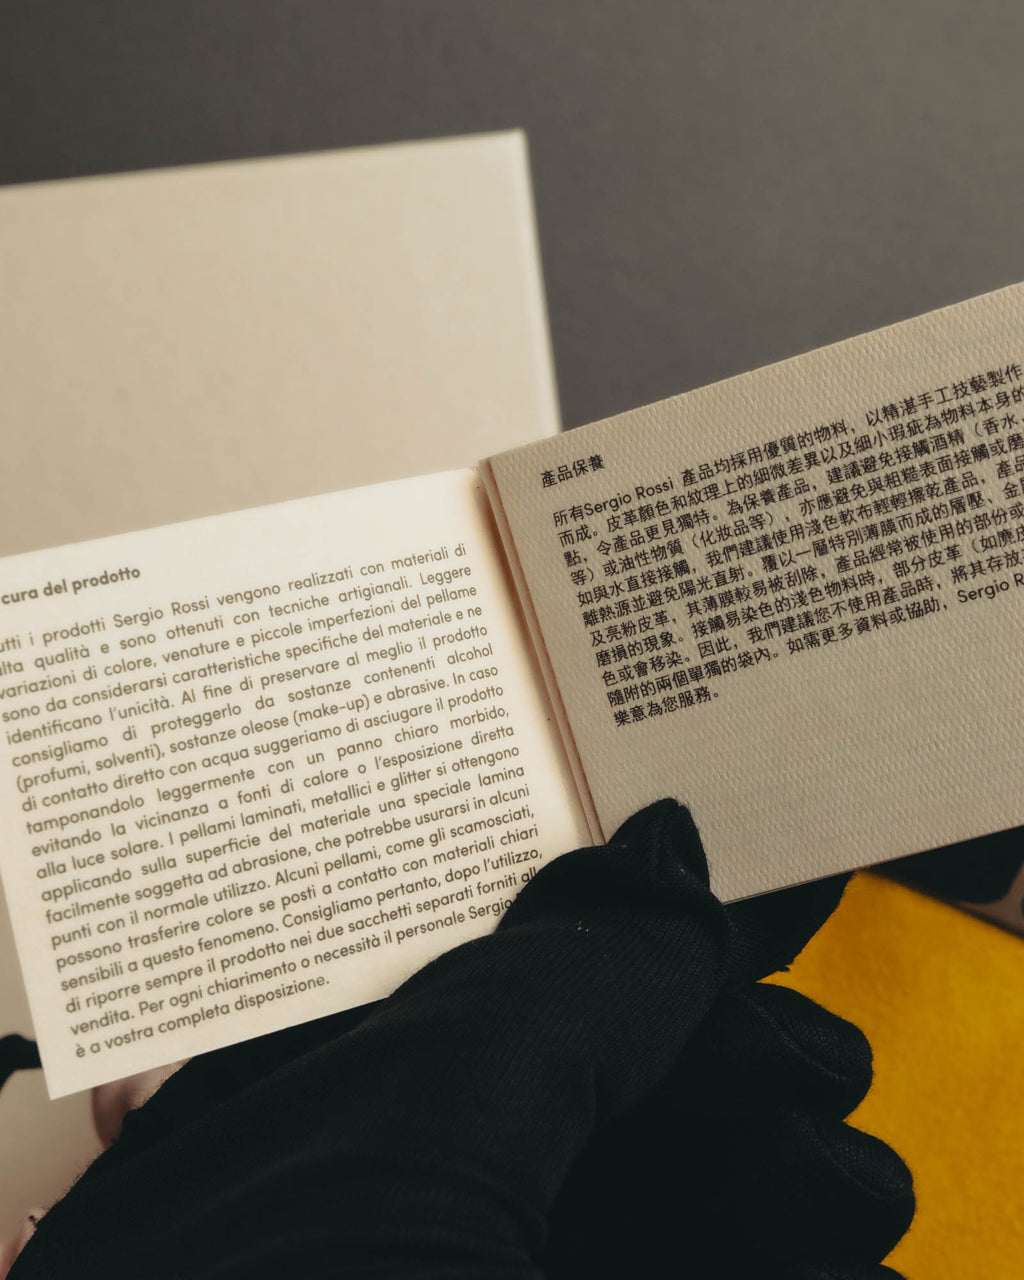 cura del prodotto
utti i prodotti Sergio Rossi vengono realizzati con materiali di
lta qualità e sono ottenuti con tecniche artigianali. Leggere
variazioni di colore, venature e piccole imperfezioni del pellame
sono da considerarsi caratteristiche specifiche del materiale e ne
identificano l'unicità. Al fine di preservare al meglio il prodotto
consigliamo di proteggerlo da sostanze contenenti alcohol
(profumi, solventi), sostanze oleose (make-up) e abrasive. In caso
di contatto diretto con acqua suggeriamo di asciugare il prodotto
tamponandolo leggermente con un panno chiaro morbido,
evitando la vicinanza a fonti di calore o l'esposizione diretta
alla luce solare. I pellami laminati, metallici e glitter si ottengono
applicando sulla superficie del materiale una speciale lamina
facilmente soggetta ad abrasione, che potrebbe usurarsi in alcuni
punti con il normale utilizzo. Alcuni pellami, come gli scamosciati,
possono trasferire colore se posti a contatto con materiali chiari
sensibili a questo fenomeno. Consigliamo pertanto, dopo l'utilizzo,
di riporre sempre il prodotto nei due sacchetti separati forniti all
vendita. Per ogni chiarimento o necessità il personale Sergio
è a vostra completa disposizione.
產品保養
所有Sergio Rossi 產品均採用優質的物料，以精湛手工技藝製作
而成。皮革顏色和紋理上的細微差異以及細小瑕疵為物料本身的
點，令產品更見獨特。為保養產品，建議避免接觸酒精（香水、
等）或油性物質（化妝品等），亦應避免與粗糙表面接觸或磨
如與水直接接觸，我們建議使用淺色軟布輕輕擦乾產品，產品
離熱源並避免陽光直射。覆以一層特別薄膜而成的層壓、金屬
及亮粉皮革，其薄膜較易被刮除，產品經常被使用的部份或
磨損的現象。接觸易染色的淺色物料時，部分皮革（如麂皮
色或會移染。因此，我們建議您不使用產品時，將其存放
隨附的兩個單獨的袋內。如需更多資料或協助，Sergio R
樂意為您服務。